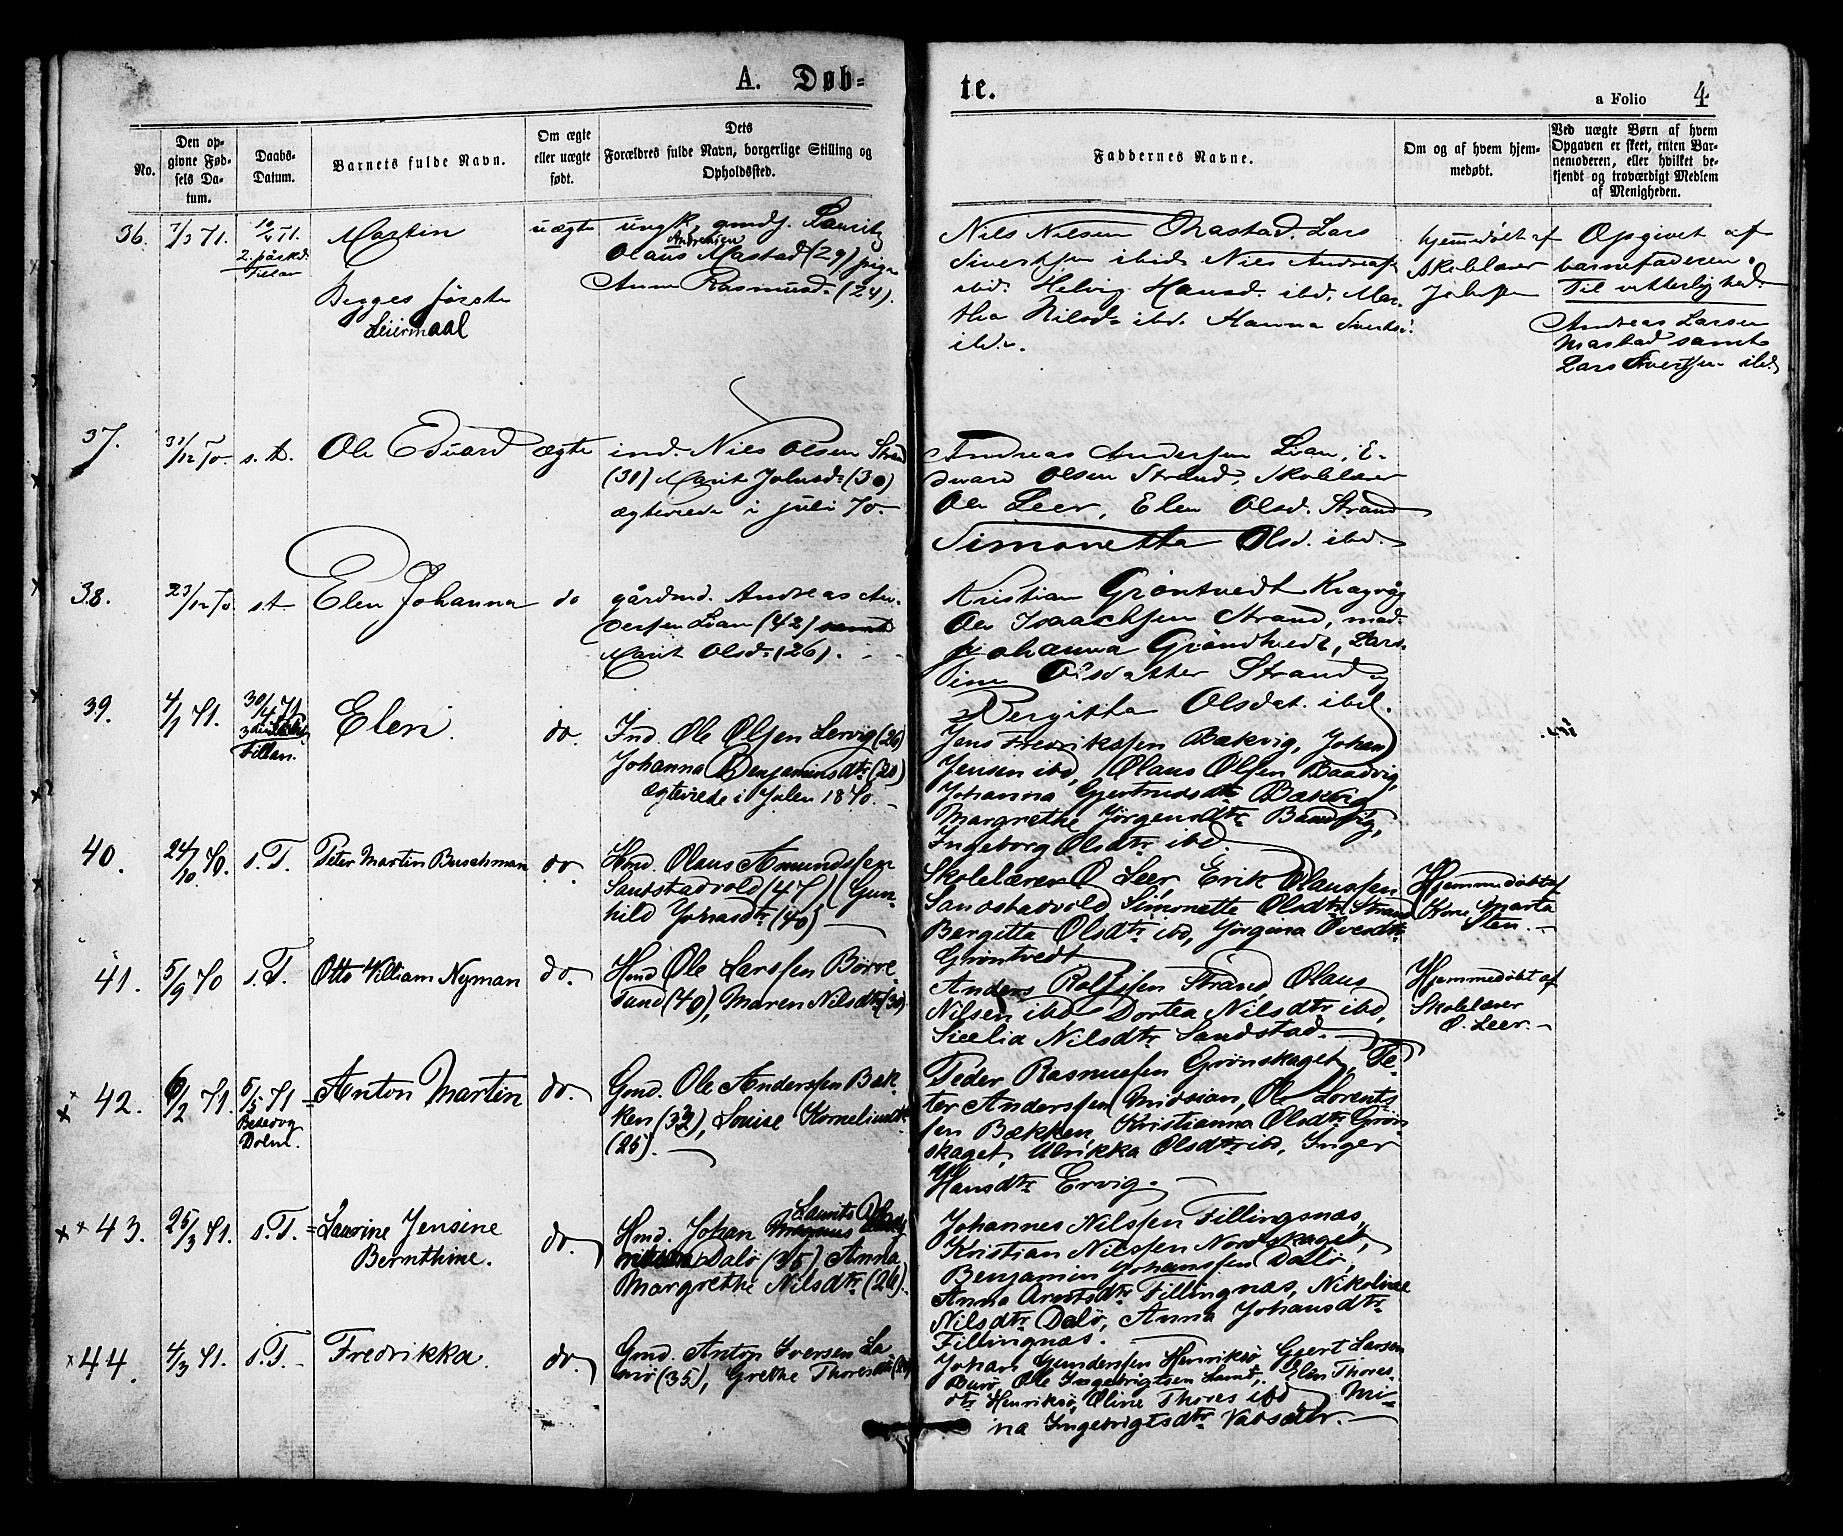 A. Døb-
te.
a Folio 4
No.
Den op-
givne Fød-
sels Da-
tum.
Daabs-
Datum.
Barnets fulde Navn.
Om ægte
eller uægte
født.
Dets
Forældres fulde Navn, borgerlige Stilling og
Opholdssted.
Faddernes Navne.
Om og af hvem hjem-
medøbt.
Ved uægte Børn af hvem
Opgaven er skeet, enten Bar-
nemoderen, eller hvilket be-
kjendt og troværdigt Medlem
af Menigheden.
36.
7/3 71.
10/4 71.
2. påskd.
Fillan
Martin
Begges første
Leiermaal
uægte
ungk. gmdj. Lauritz
Andreasen
Olaus Mastad (29) pige
Anne Rasmusd. (24).
Nils Nilsen Mastad. Lars
Sivertsen ibid. Nils Andreass.
ibd. Helvig Hansd. ibd. Mar-
tha Nilsd. ibd. Hanna Siverts.
ibd.
hjemmedøbt af
skolelærer
Opgivet af
barnefaderen.
Til vitterlighed
Andreas Larsen
Mastad samt
Lars Sivertsen ibd.
37.
31/12 70.
s. t.
Ole Eduard
ægte
ind. Nils Olsen Strand
(30) Marit Johnsd. (30)
ægteviede i juli 70.
Andreas Andersen Lian, E-
duard Olsen Strand, Skolelærer
Ole Leer, Elen Olsd. Strand
Simonetta Olsd. ibd.
38.
23/12 70.
s. t
Elen Johanna
do
gårdmd. Andreas An-
dersen Lian (42) samt
Marit Olsd. (26).
Kristian Grøntvedt Kragvåg
Ole Isaachsen Strand, mad.
Johanna Grøndtvedt, Lars-
sine Olsdatter Strand
Bergitta Olsdat. ibd.
39.
4/1 71.
30/4 71.
Fillan.
Elen.
do.
Ind. Ole Olsen Lervig (26)
Johanna Benjaminsdtr (20)
Ægteviede i Julen 1870.
Jens Fredriksen Bækvig, Johan
Jensen ibd, Olaus Olsen Baadvig,
Johanna Gjertrudsdtr Bækvig
Margrethe Jørgensdtr. Baadvig,
Ingeborg Olsdtr ibd.
40.
24/10 70.
s. T.
Peter Martin Buschman
do.
Hmd. Olaus Amundssen
Sandstadvold (47) Gun-
hild Johasdtr (40)
Skolelærer O Leer, Erik Olaussen
Sandstadvold Simonette Olsdtr Strand
Bergitta Olsdtr ibd, Jørgina Ovesdtr
Grøntvedt
Hjemmedøbt af
Kone Marta
Sten.
41.
5/9 70
s. T.
Otto William Nyman
do.
Hmd Ole Larssen Börre
sand (40), Maren Nilsdtr (30)
Anders Rolfsen Strand Olaus
Nilsen ibd Dortea Nilsdtr ibd,
Sicelia Nilsdtr Sandstad.
Hjemmedøbt af
Skolelærer
O. Leer.
× × 42.
6/2 71.
5/5 71
Bededag
Dolm.
Anton Martin
do.
Gmd. Ole Anderssen Bæk-
ken (32), Louise Kornelinsdtr
(25).
Peder Rasmussen Grönskaget, Pe-
ter Anderssen Midsian, Ole Lorents-
sen Bækken, Kristianna Olsdtr Grön-
skaget, Ulrikka Olsdtr ibd, Inger
Hansdtr. Ervig.
× × 43.
25/3 71.
s. T.
Laurine Jensine
Bernthine.
do.
Laurits
Hmd. Johan Magnus
Dalø (35), Anna
Margrethe Nilsdtr (26).
Johannes Nilssen Fillingsnæs,
Kristian Nilssen Nordskaget,
Benjamin Johanssen Dalø,
Anna Arntsdtr Fillingnæs, Nikoline
Nilsdtr Dalø, Anna Johansdtr
Fillingnæs.
× 44.
4/3 71.
s. T.
Fredrikka.
do
Gmd. Anton Iversen La
(35), Grethe Thoresdtr
Johan Gunderssen Henriksø Gjert Larsen
Burø Ole Ingebrigtsen Lamt, Elen Thores-
dtr Henriksø, Oline Thores ibd, Mi-
na Ingebrigtsdtr Vadsæter.